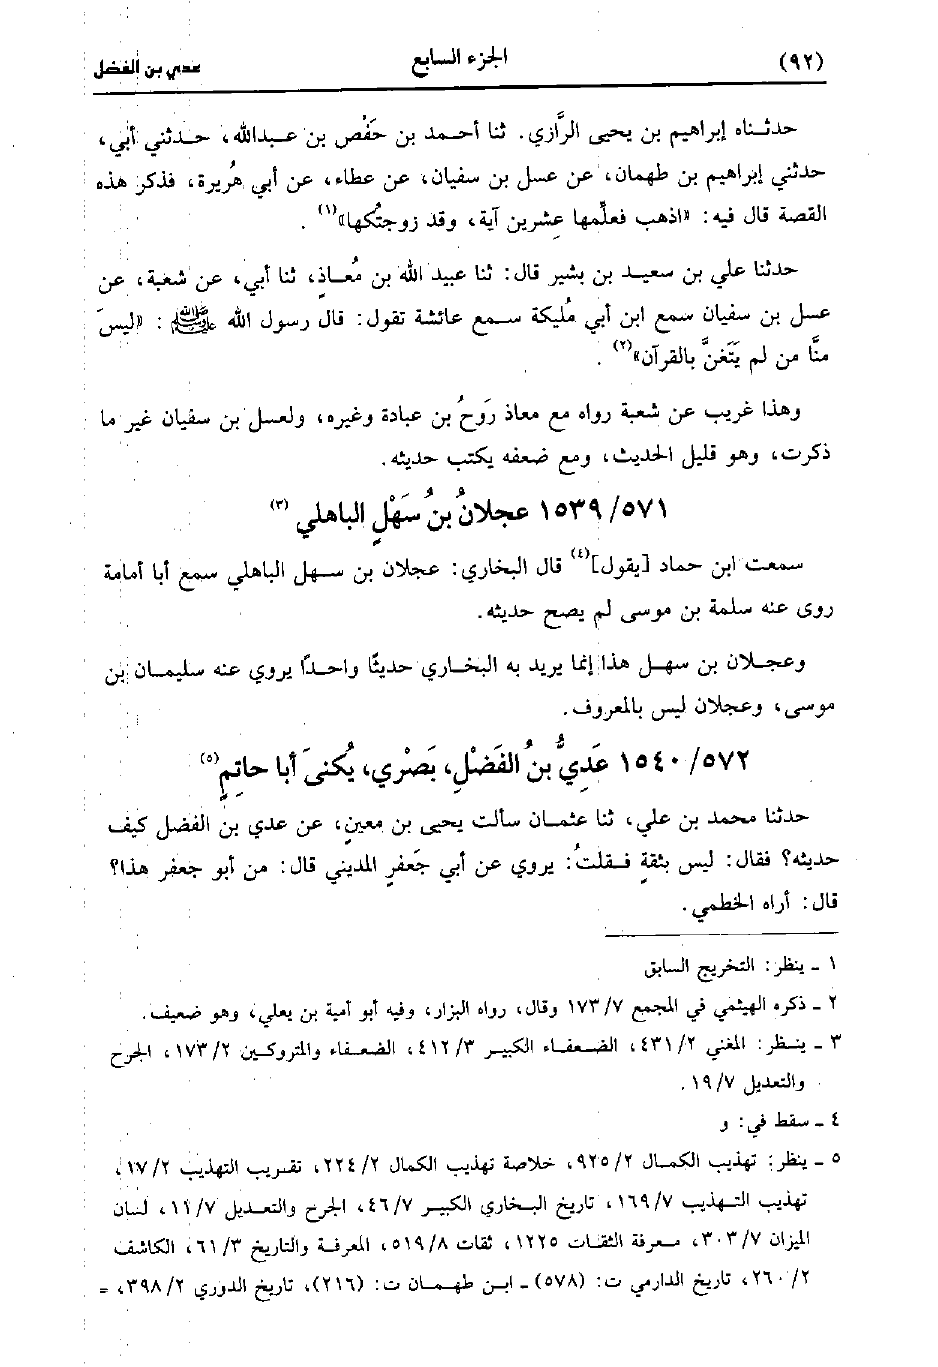 (٩٢) الجزء السابع عدي بن الفضل
حدثناه إبراهيم بن يحيى الرَّازي. ثنا أحمد بن حَفْص بن عبدالله، حدثني أبي،
حدثني إبراهيم بن طهمان، عن عسل بن سفيان، عن عطاء، عن أبي هُريرة، فذكر هذه
القصة قال فيه: «اذهب فعلِّمها عشرين آية، وقد زوجتُكها»(١) .
حدثنا علي بن سعيد بن بشير قال: ثنا عبيد الله بن مُعاذٍ، ثنا أبي، عن شعبة، عن
عسل بن سفيان سمع ابن أبي مُليكة سمع عائشة تقول: قال رسول الله ﷺ : «ليسَ
منَّا من لم يَتَغنَّ بالقرآن»(٢) .
وهذا غريب عن شعبة رواه مع معاذ رَوحُ بن عبادة وغيره، ولعسل بن سفيان غير ما
ذكرت، وهو قليل الحديث، ومع ضعفه يكتب حديثه.
١٥٣٩/٥٧١ عجلانُ بنُ سَهْلٍ الباهلي (٣)
سمعت ابن حماد [يقول](٤) قال البخاري: عجلان بن سهل الباهلي سمع أبا أمامة
روى عنه سلمة بن موسى لم يصح حديثه.
وعجلان بن سهل هذا إنما يريد به البخاري حديثًا واحدًا يروي عنه سليمان بن
موسى، وعجلان ليس بالمعروف.
١٥٤٠/٥٧٢ عَدِيُّ بنُ الفَضْلِ، بَصْري، يُكنىَ أبا حاتِمٍ(٥)
حدثنا محمد بن علي، ثنا عثمان سألت يحيى بن معينٍ، عن عدي بن الفضل كيف
حديثه؟ فقال: ليس بثقةٍ فقلتُ: يروي عن أبي جَعفرٍ المديني قال: من أبو جعفر هذا؟
قال: أراه الخطمي.
١ ـ ينظر: التخريج السابق
٢ ـ ذكره الهيثمي في المجمع ١٧٣/٧ وقال، رواه البزار، وفيه أبو أمية بن يعلي، وهو ضعيف.
٣ ـ ينظر: المغني ٤٣١/٢، الضعفاء الكبير ٤١٢/٣، الضعفاء والمتروكين ١٧٣/٢، الجرح
والتعديل ١٩/٧ .
٤ ـ سقط في: و
٥ ـ ينظر: تهذيب الكمال ٩٢٥/٢، خلاصة تهذيب الكمال ٢٢٤/٢، تقريب التهذيب ١٧/٢،
تهذيب التهذيب ١٦٩/٧، تاريخ البخاري الكبير ٤٦/٧، الجرح والتعديل ١١/٧، لسان
الميزان ٣٠٣/٧، معرفة الثقات ١٢٢٥، ثقات ٥١٩/٨، المعرفة والتاريخ ٦١/٣، الكاشف
٢٦٠/٢، تاريخ الدارمي ت: (٥٧٨) ـ ابن طهمان ت: (٢١٦)، تاريخ الدوري ٣٩٨/٢، =